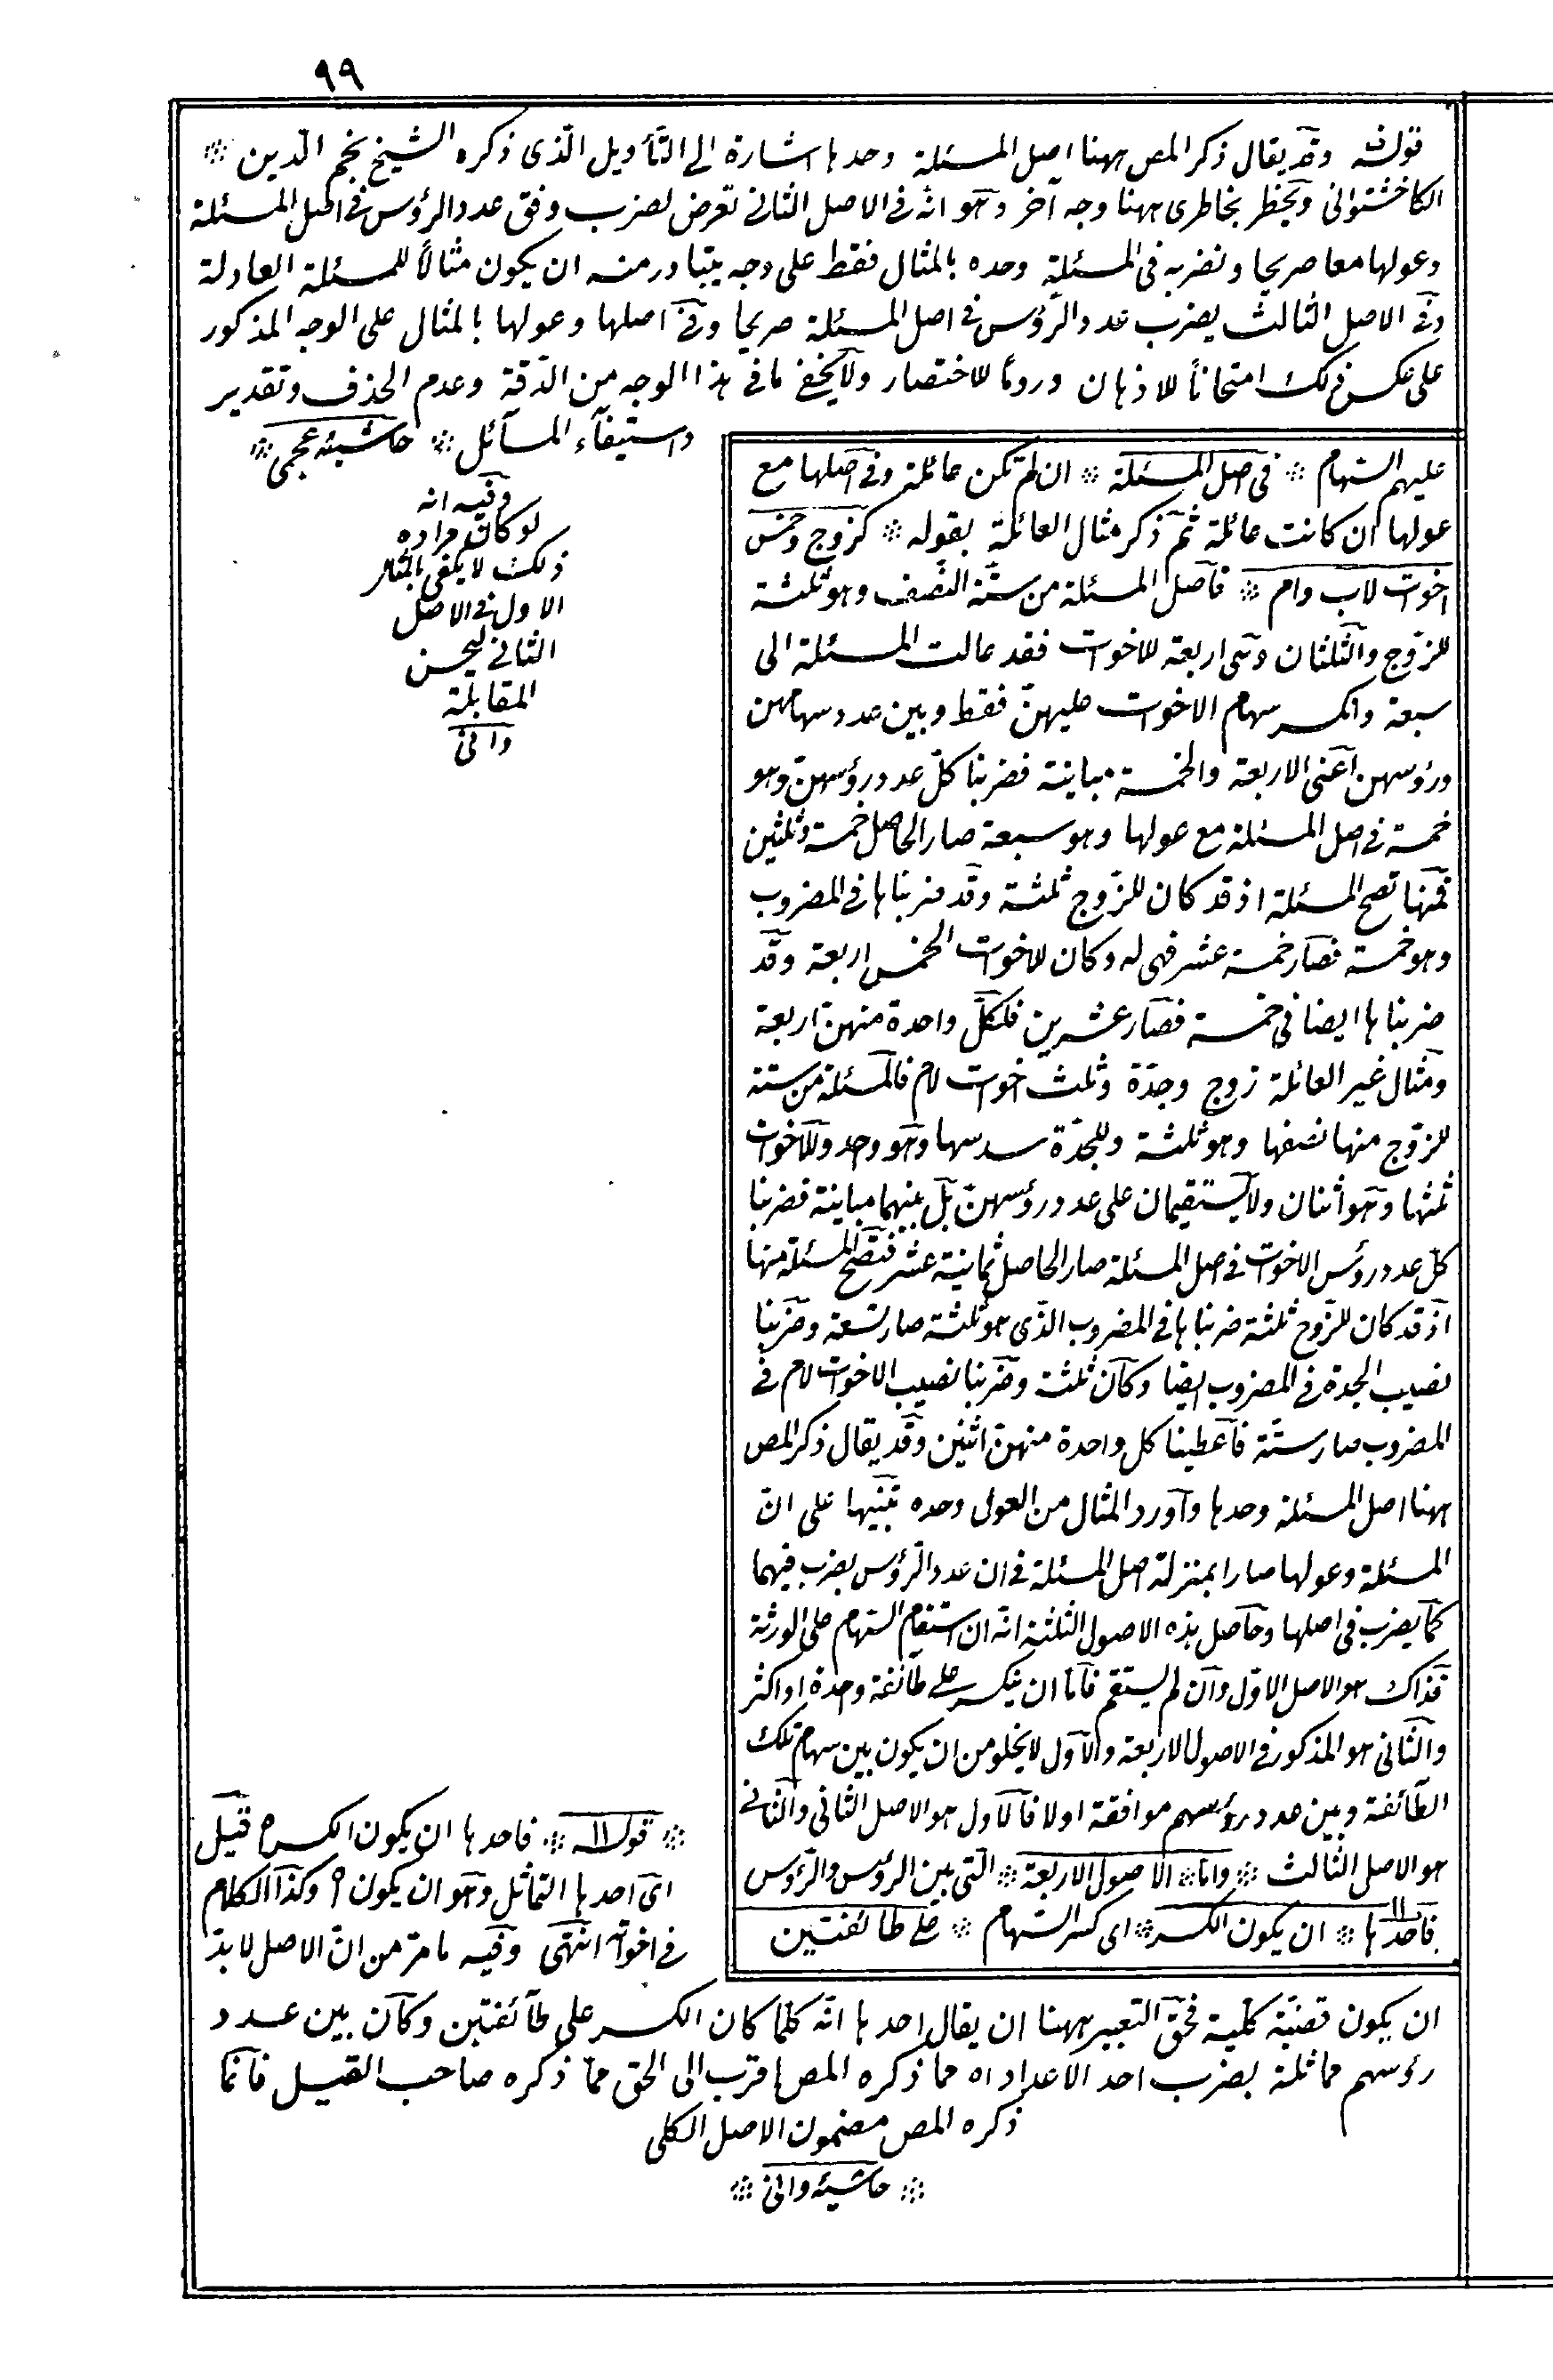 ٩٩
قوله وقد يقال ذكر المص ههنا اصل المسئلة وحدها اشارة الى التأويل الذى ذكره الشيخ نجم الدين *
الكاخشتوانى ويخطر بخاطرى ههنا وجه آخر وهو انه فى الاصل الثانى تعرض لضرب وفق عدد الرؤس فى اصل المسئلة
وعولها معا صريحا ونضربه فى المسئلة وحده بالمثال فقط على وجه يتبادر منه ان يكون مثالاً للمسئلة العادلة
وفى الاصل الثالث يضرب عدد الرؤس فى اصل المسئلة صريحا وفى اصلها وعولها بالمثال على الوجه المذكور
على عكس ذلك امتحاناً للاذهان وروماً للاختصار ولا يخفى ما فى هذا الوجه من الدقة وعدم الحذف وتقدير
واستيفآء المسآئل * حاشيه عجمى *
وفيه انه
لو كان مراده
ذلك لا يكفى بالمثال
الاول فى الاصل
الثانى ليحسن
المقابلة
وانى
عليهم السهام * فى اصل المسئلة * ان لم تكن عائلة وفى اصلها مع
عولها ان كانت عائلة ثم ذكر مثال العائلة بقوله * كزوج وخمس
اخوات لاب وام * فاصل المسئلة من ستة النصف وهو ثلثة
للزوج والثلثان وهى اربعة للاخوات فقد عالت المسئلة الى
سبعة وانكسر سهام الاخوات عليهن فقط وبين عدد سهامهن
ورؤسهن اعنى الاربعة والخمسة مباينة فضربنا كل عدد رؤسهن وهو
خمسة فى اصل المسئلة مع عولها وهو سبعة صار الحاصل خمسة وثلثين
فمنها تصح المسئلة اذ قد كان للزوج ثلثة وقد ضربناها فى المضروب
وهو خمسة فصار خمسة عشر فهى له وكان للاخوات الخمس اربعة وقد
ضربناها ايضا فى خمسة فصار عشرين فلكل واحدة منهن اربعة
ومثال غير العائلة زوج وجدة وثلث اخوات لام فالمسئلة من ستة
للزوج منها نصفها وهو ثلثة وللجدة سدسها وهو واحد وللاخوات
ثلثها وهو اثنان ولا يستقيمان على عدد رؤسهن بل بينهما مباينة فضربنا
كل عدد رؤس الاخوات فى اصل المسئلة صار الحاصل ثمانية عشر فتصح المسئلة منها
اذ قد كان للزوج ثلثة ضربناها فى المضروب الذى هو ثلثة صار تسعة وضربنا
نصيب الجدة فى المضروب ايضا وكان ثلثة وضربنا نصيب الاخوات لام فى
المضروب صار ستة فاعطينا كل واحدة منهن اثنين وقد يقال ذكر المص
ههنا اصل المسئلة وحدها وآورد المثال من العول وحده تنبيها على ان
المسئلة وعولها صارا بمنزلة اصل المسئلة فى ان عدد الرؤس يضرب فيهما
كما يضرب فى اصلها وحاصل هذه الاصول الثلثة انه ان استقام السهام على الورثة
فذاك هو الاصل الاول وان لم يستقم فاما ان ينكسر على طائفة واحدة او اكثر
والثانى هو المذكور فى الاصول الاربعة والاول لا يخلو من ان يكون بين سهام تلك
الطائفة وبين عدد رؤسهم موافقة اولا فالاول هو الاصل الثانى والثانى
هو الاصل الثالث * واما * الاصول الاربعة * التى بين الرؤس والرؤس
فاحدها * ان يكون الكسر * اى كسر السهام * على طائفتين
* قوله ١١ * فاحدها ان يكون الكسر ه قيل
اى احدها التماثل وهو ان يكون ه وكذا الكلام
فى اخواته انتهى وفيه ما مر من ان الاصل لابد
ان يكون قضية كلية فحق التعبير ههنا ان يقال احدها انه كلما كان الكسر على طآئفتين وكان بين عدد
رؤسهم مماثلة بضرب احد الاعداد اه مما ذكره المص اقرب الى الحق مما ذكره صاحب القيل فانما
ذكره المص مضمون الاصل الكلى
* حاشيه وانى *